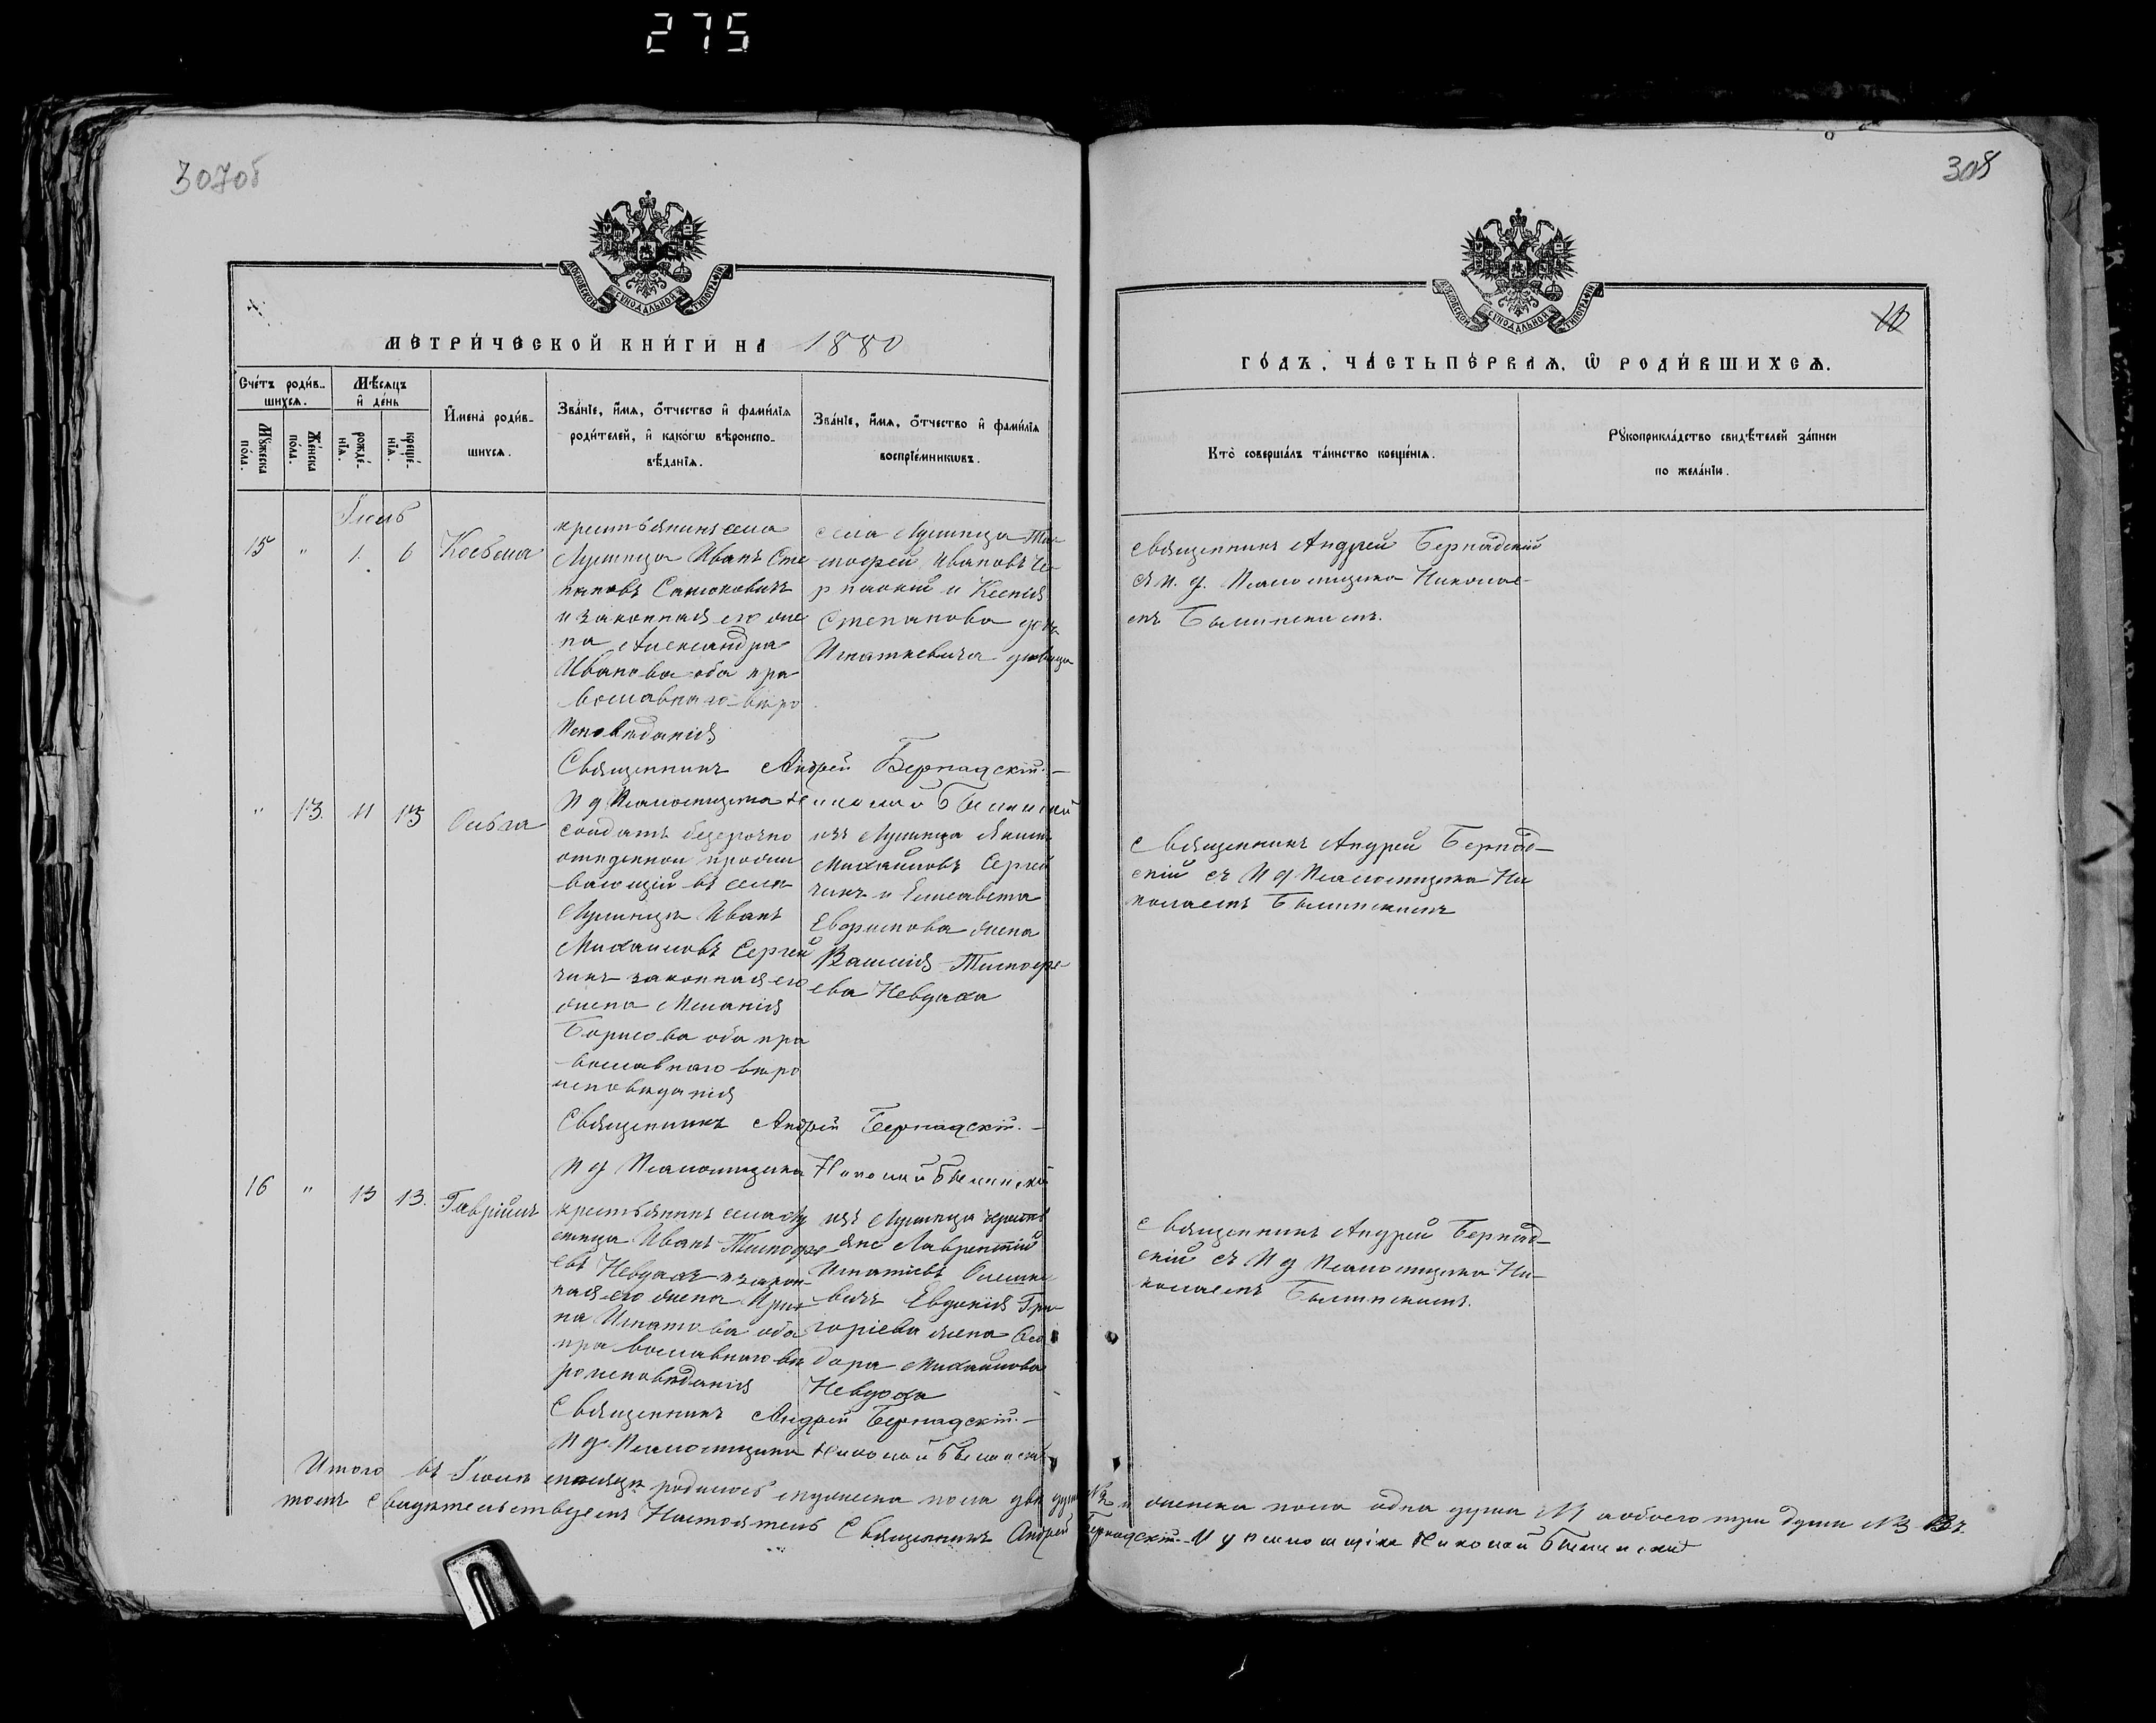 275
307об
МОСКОВСКОЙ СѴНОДАЛЬНОЙ ТИПОГРАФІИ
МЕТРИЧЕСКОЙ КНИГИ НА 1880
Счетъ родив-
шихся.
Мужеска пола.
Женска пола.
Мѣсяцъ
и день
рожде-
нія.
креще-
нія.
Имена родив-
шихся.
Званіе, имя, отчество и фамилія
родителей, и какогѡ вѣроиспо-
вѣданія.
Званіе, имя, отчество и фамилія
воспріемникѡвъ.
Іюль
15 " 1. 6 Косьма
крестьянинъ села
Лунинца Иванъ Сте
пановъ Самоковичъ
и законная его же
на Александра
Иванова оба пра
вославнаго вѣро
исповѣданія
села Лунинца Ти
мофей Ивановъ
и Ксенія
Степанова дочь
Игнаткевича девица
Священникъ Андрей Бернадскій.—
И д Псаломщика Николай
" 13. 11 13 Ольга
солдатъ безсрочно
отпускной прожи
вающій въ селѣ
Лунинцѣ Иванъ
Михаиловъ Сергей
чикъ законная его
жена Меланія
Борисова оба пра
вославнаго вѣро
исповѣданія
изъ Лунинца Яким
Михаиловъ Сергей
чикъ и Елисавета
жена
Тимофе-
ева Невдаха
Священникъ Андрей Бернадскій.—
И д Псаломщика Николай
16 " 13 13. Гавріилъ
крестьянинъ села Лу
нинца Иванъ Тимофе
евъ Невдахъ и закон
ная его жена Ири
на Игнатова оба
православнаго вѣ
роисповѣданія
изъ Лунинца крестья
яне Лаврентій
Игнатіевъ
вичъ Евдокія Гри
горіева жена Ѳео
дора Михайлова
Невдаха
Священникъ Андрей Бернадскій.—
И д Псаломщика Николай
Итого въ Іюлѣ мѣсяцѣ родилось мужеска пола двѣ души №2 и женска пола одна душа №1 а обоего три души №3 Въ
томъ свидѣтельствуемъ Настоятель Священникъ Андрей Бернадскій. И д псаломщика Николай
308
10
МОСКОВСКОЙ СѴНОДАЛЬНОЙ ТИПОГРАФІИ
ГОДЪ, ЧАСТЬ ПЕРВАЯ, Ѡ РОДИВШИХСЯ.
Кто совершалъ таинство крещенія.
Рукоприкладство свидѣтелей записи
по желанію.
Священникъ Андрей Бернадскій
съ И. д. Псаломщика Николае-
мъ
Священникъ Андрей Бернад—
скій съ И д Псаломщика Ни
колаемъ
Священникъ Андрей Бернад—
скій съ И д Псаломщика Ни—
колаемъ